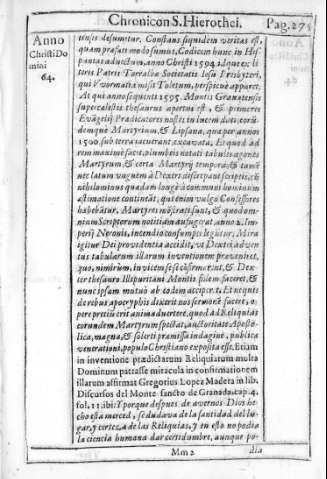 Chronicon S. Hierothei. Pag. 275
Anno
Christi Do
mini
64.
tensis desumitur. Constans siquidem veritas est,
quam præfati modo sumus, Codicem hunc in His-
pantas aductum, anno Christi 1594. idque ex li
teris Patris Torralba Societatis Iesu Presbyteri,
qui Vvormatia misit Toletum, perspicuè apparet.
At qui anno sequenti 1595. Montis Granatensis
supercælestis thesaurus apertus est, & primeres
Euãgelij Prædicatores nostri in lucem dati, corũ
demque Martyrium, & Lipsana, qua per annos
1500. sub terra iacuerant, excavata. Et quod ad
rem maximè facit, plumbeis notati tabulis agones
Martyrum, & certa Martyrij tempora, & tamẽ
nec latum vnguem à Dextri discrepant scriptis, &
nihilominus quadam longè à communi hominum
æstimatione continẽtur, qui enim vulgo Confessores
habebãtur, Martyres mõstrati sunt, & quod om-
nium Scriptorum notitiam aufugerat anno 2. Im-
perij Neronis, incendio consumpti legũtur. Mira
igitur Dei providentia accidit, vt Dexter adven
tus tabularum illarum inventionem præveniret,
quo, nimirum, invicem sese cõfirmarent, & Dex-
ter thesauro Illipuritani Montis fidem faceret, &
nunc ipsam mutuò ab eodem acciperet. Et ne quis
de rebus apocryphis dixerit nos sermonẽ facere, o-
pere pretiũ erit animadvertere, quod ad Reliquias
eorumdem Martyrum spectat, auctoritate Aposto-
lica, magna, & solerti præmissa indagine, publicæ
venerationi, populo Christiano exposita esse. Etiam
in inventione prædictarum Reliquiarum multa
Dominum patrasse miracula in confirmationem
illarum affirmat Gregorius Lopez Madera in lib.
Discursos del Monte sancto de Granada, cap. 4.
fol. 11. ibi: Y porque despues de avernos Dios he-
cho esta merced, se dudava de la santidad del lu-
gar, y certeza de las Reliquias, y en esto no podia
la ciencia humana dar certidumbre, aunque po-
Mm 2 dia